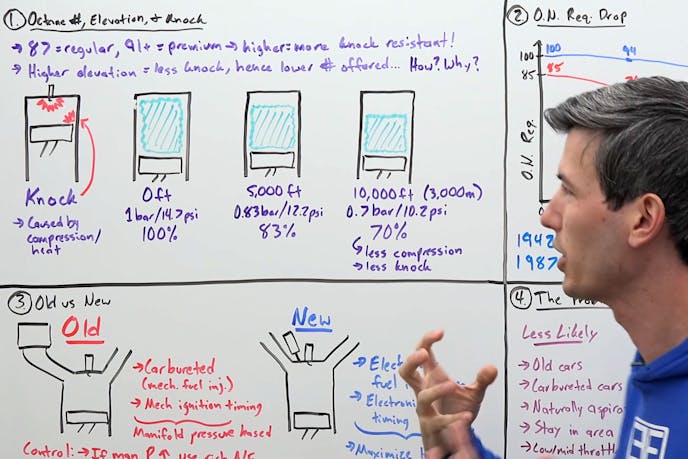 ① Octane #, Elevation, & Knock
→ 87 = regular, 91+ = premium → higher = more knock resistant!
→ Higher elevation = less knock, hence lower # offered... How? Why?
Knock
→ Caused by
compression/
heat
0ft
1bar/14.7psi
100%
5,000ft
0.83bar/12.2psi
83%
10,000ft (3,000m)
0.7bar/10.2psi
70%
↳ less compression
→ less knock
② O.N. Req. Drop
100
85
100
94
85
O.N. Req.
1942
1987
③ Old vs New
Old
→ Carbureted
(mech. fuel inj.)
→ Mech ignition timing
Manifold pressure based
Control: → If man P ↑
New
→
fuel
→ Electronic
timing
→ Maximize
④ The
Less Likely
→ Old cars
→ Carbureted cars
→ Naturally
→ Stay in area
→ Low/mid